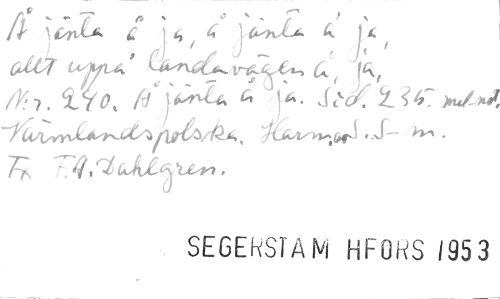 Å jänta å ja, å jänta å ja,
allt uppå landavägen å, ja,
N:r. 240. Å jänta å ja. Sid. 235. mel.-not.
Värmlandspolska. Harm. av S. S-m.
Tx F.A. Dahlgren.
SEGERSTAM HFORS 1953